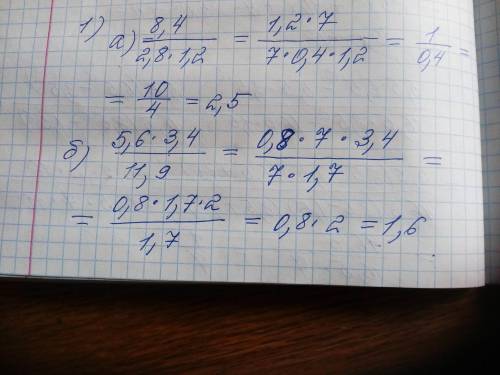 1) а) 8,4 / 2,8·1,2 = 1,2·7 / 7·0,4·1,2 = 1 / 0,4 =
= 10 / 4 = 2,5
б) 5,6·3,4 / 11,9 = 0,8·7·3,4 / 7·1,7 =
= 0,8·1,7·2 / 1,7 = 0,8·2 = 1,6